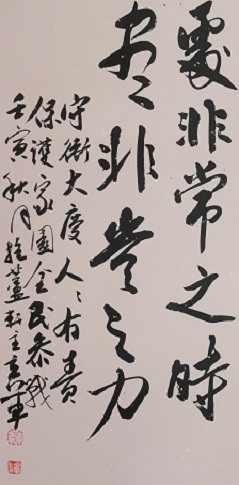 處非常之時
盡非常之力
守衛大慶人々有責
保護家園全民參戰
壬寅秋月